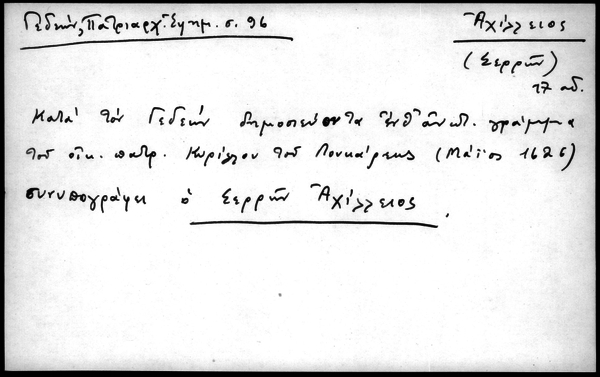 Γεδεών, Πατριαρχ. Εφημ. σ. 96
Ἀχίλλειος
(Σερρῶν)
17 αἰ.
Κατά τόν Γεδεών δημοσιεύοντα ἐνθ' ἀνωτ. γράμμα
τοῦ οἰκ. πατρ. Κυρίλλου τοῦ Λουκάρεως (Μάϊος 1626)
συνυπογράφει ὁ Σερρῶν Ἀχίλλειος.